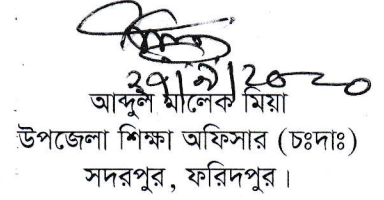 ২৭/৯/২০২০
আব্দুল মালেক মিয়া
উপজেলা শিক্ষা অফিসার (চঃদাঃ)
সদরপুর, ফরিদপুর।